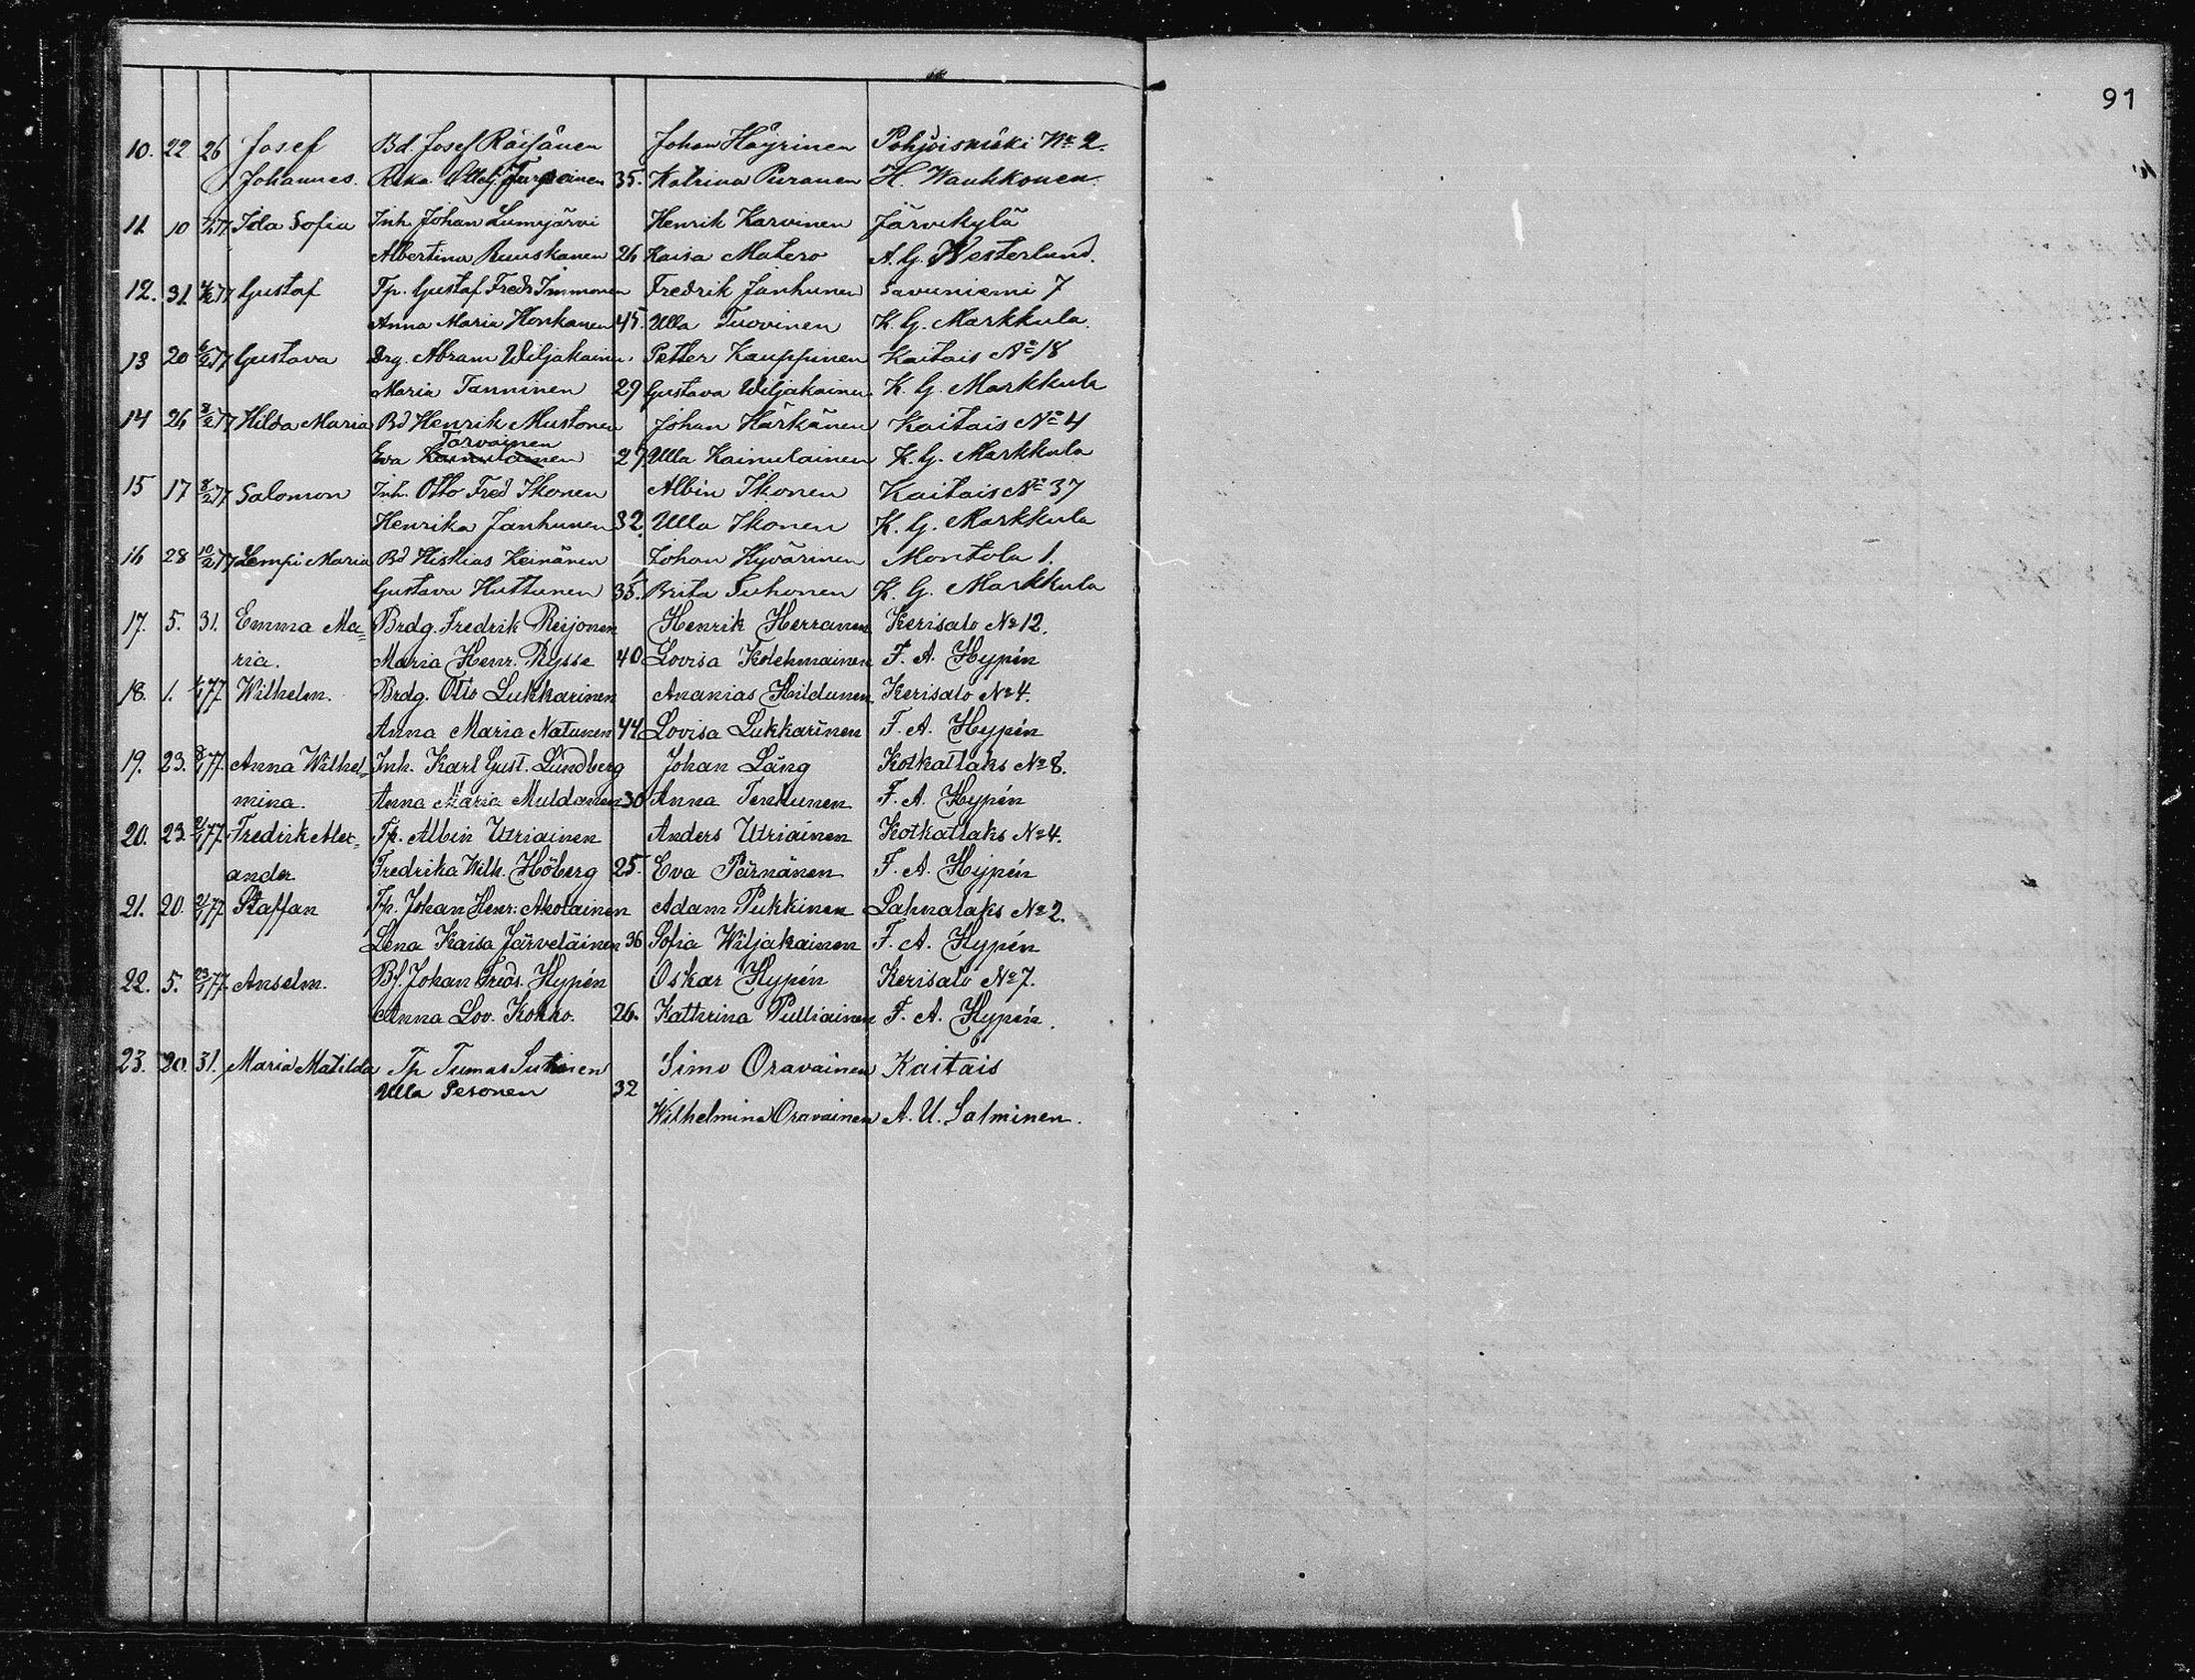 91
10. 22 26 Josef Bd. Josef Räisänen Johan Häyrinen Pohjoismäki No 2.
Johannes. Rika Ullab. Turpeinen 35. Katrina Puranen H. Wauhkonen.
11 10 77 Ida Sofia Inh. Johan Lumijärvi Henrik Karvinen Järvikylä
Albertina Ruuskanen 26 Kaisa Matero A. G. Westerlund.
12. 31 77 Gustaf Tp. Gustaf Fredr Immonen Fredrik Janhunen Savuniemi 7
Anna Maria Honkanen 45. Ulla Tuovinen K. G. Markkula.
13 20 6/2 77 Gustava Drg. Abram Wiljakainen Petter Kauppinen Kaitais No 18
Maria Tanninen 29 Gustava Wiljakainen K. G. Markkula
14 26 8/2 77 Hilda Maria Bd Henrik Mustonen Johan Härkänen Kaitais No 4
Tarvainen
Eva Kainulainen 27 Ulla Kainulainen K. G. Markkula
15 17 8/2 77 Salomon Inh. Otto Fred Ikonen Albin Ikonen Kaitais No 37
Henrika Janhunen 32. Ulla Ikonen K. G. Markkula
16 28 10/2 77 Lempi Maria Bd Hiskias Keinänen Johan Hyvärinen Montola 1.
Gustava Huttunen 35. Brita Suhonen K. G. Markkula
17. 5. 31. Emma Ma= Brdg. Fredrik Reijonen Henrik Herranen Kerisalo No 12.
ria. Maria Henr. Rysse 40 Lovisa Kolehmainen F. A. Hypén
18. 1. 77 Wilhelm. Brdg. Otto Lukkarinen Ananias Hildunen Kerisalo No 4.
Anna Maria Natunen 44 Lovisa Lukkarinen F. A. Hypén
19. 23. 77. Anna Wilhel= Inh. Karl Gust. Lundberg Johan Läng Kotkatlaks No 8.
mina. Anna Maria Muldanen 30 Anna Tenhunen F. A. Hypén
20. 23. 77. Fredrik Alex= Tp. Albin Utriainen Anders Utriainen Kotkatlaks No 4.
ander. Fredrika Wilh. Höberg 25. Eva Pärnänen F. A. Hypén
21. 20. 77. Staffan Tp. Johan Henr. Akolainen Adam Pukkinen Lahnalaks No 2.
Lena Kaisa Järveläinen 36 Sofia Wiljakainen F. A. Hypén
22. 5. 77. Anselm. Bf. Johan Fredr. Hypén Oskar Hypén Kerisalo No 7.
Anna Lov. Kokko. 26. Kathrina Pulliainen F. A. Hypén.
23. 20. 31. Maria Matilda Tp Tumas Sutinen Simo Oravainen Kaitais
Ulla Pesonen 32
Wilhelmina Oravainen A. U. Salminen.